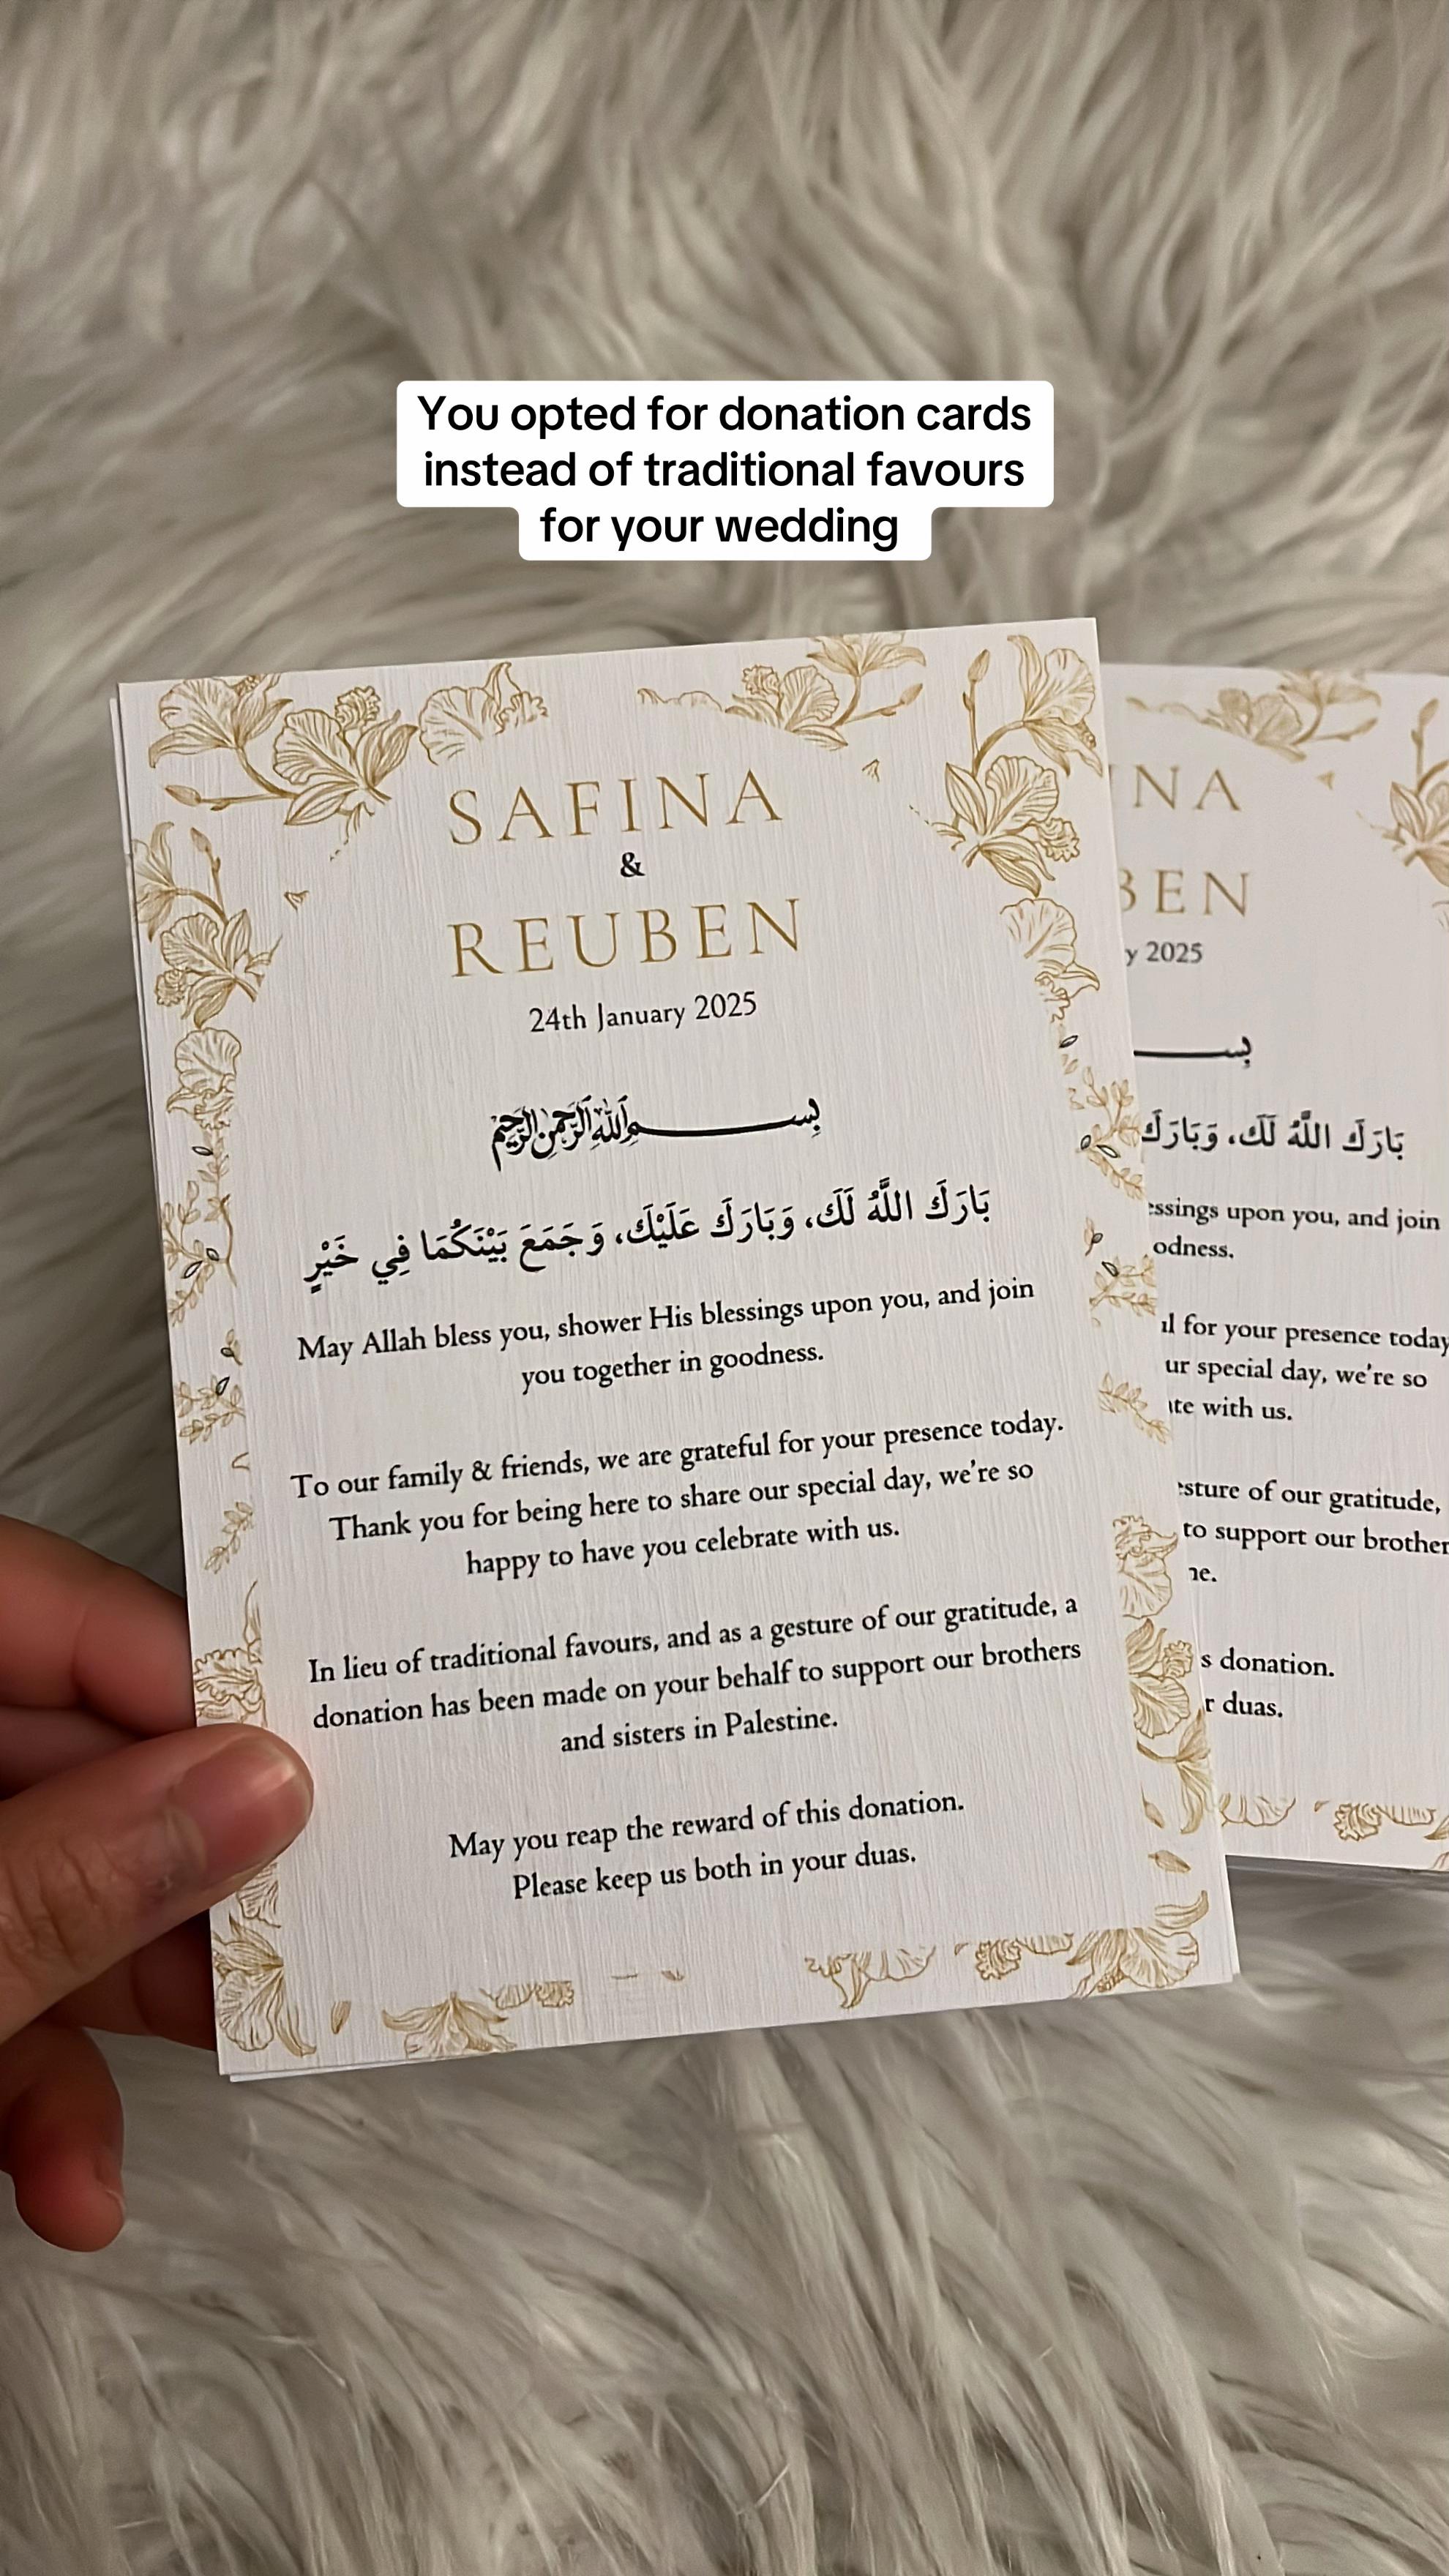 You opted for donation cards
instead of traditional favours
for your wedding
SAFINA
&
REUBEN
24th January 2025
بِسْمِ اللَّهِ الرَّحْمَٰنِ الرَّحِيمِ
بَارَكَ اللَّهُ لَكَ، وَبَارَكَ عَلَيْكَ، وَجَمَعَ بَيْنَكُمَا فِي خَيْرٍ
May Allah bless you, shower His blessings upon you, and join
you together in goodness.
To our family & friends, we are grateful for your presence today.
Thank you for being here to share our special day, we're so
happy to have you celebrate with us.
In lieu of traditional favours, and as a gesture of our gratitude, a
donation has been made on your behalf to support our brothers
and sisters in Palestine.
May you reap the reward of this donation.
Please keep us both in your duas.
2025
بَارَكَ اللَّهُ لَكَ، وَبَارَكَ
upon you, and join
for your presence today
special day, we're so
with us.
of our gratitude,
to support our
donation.
duas.